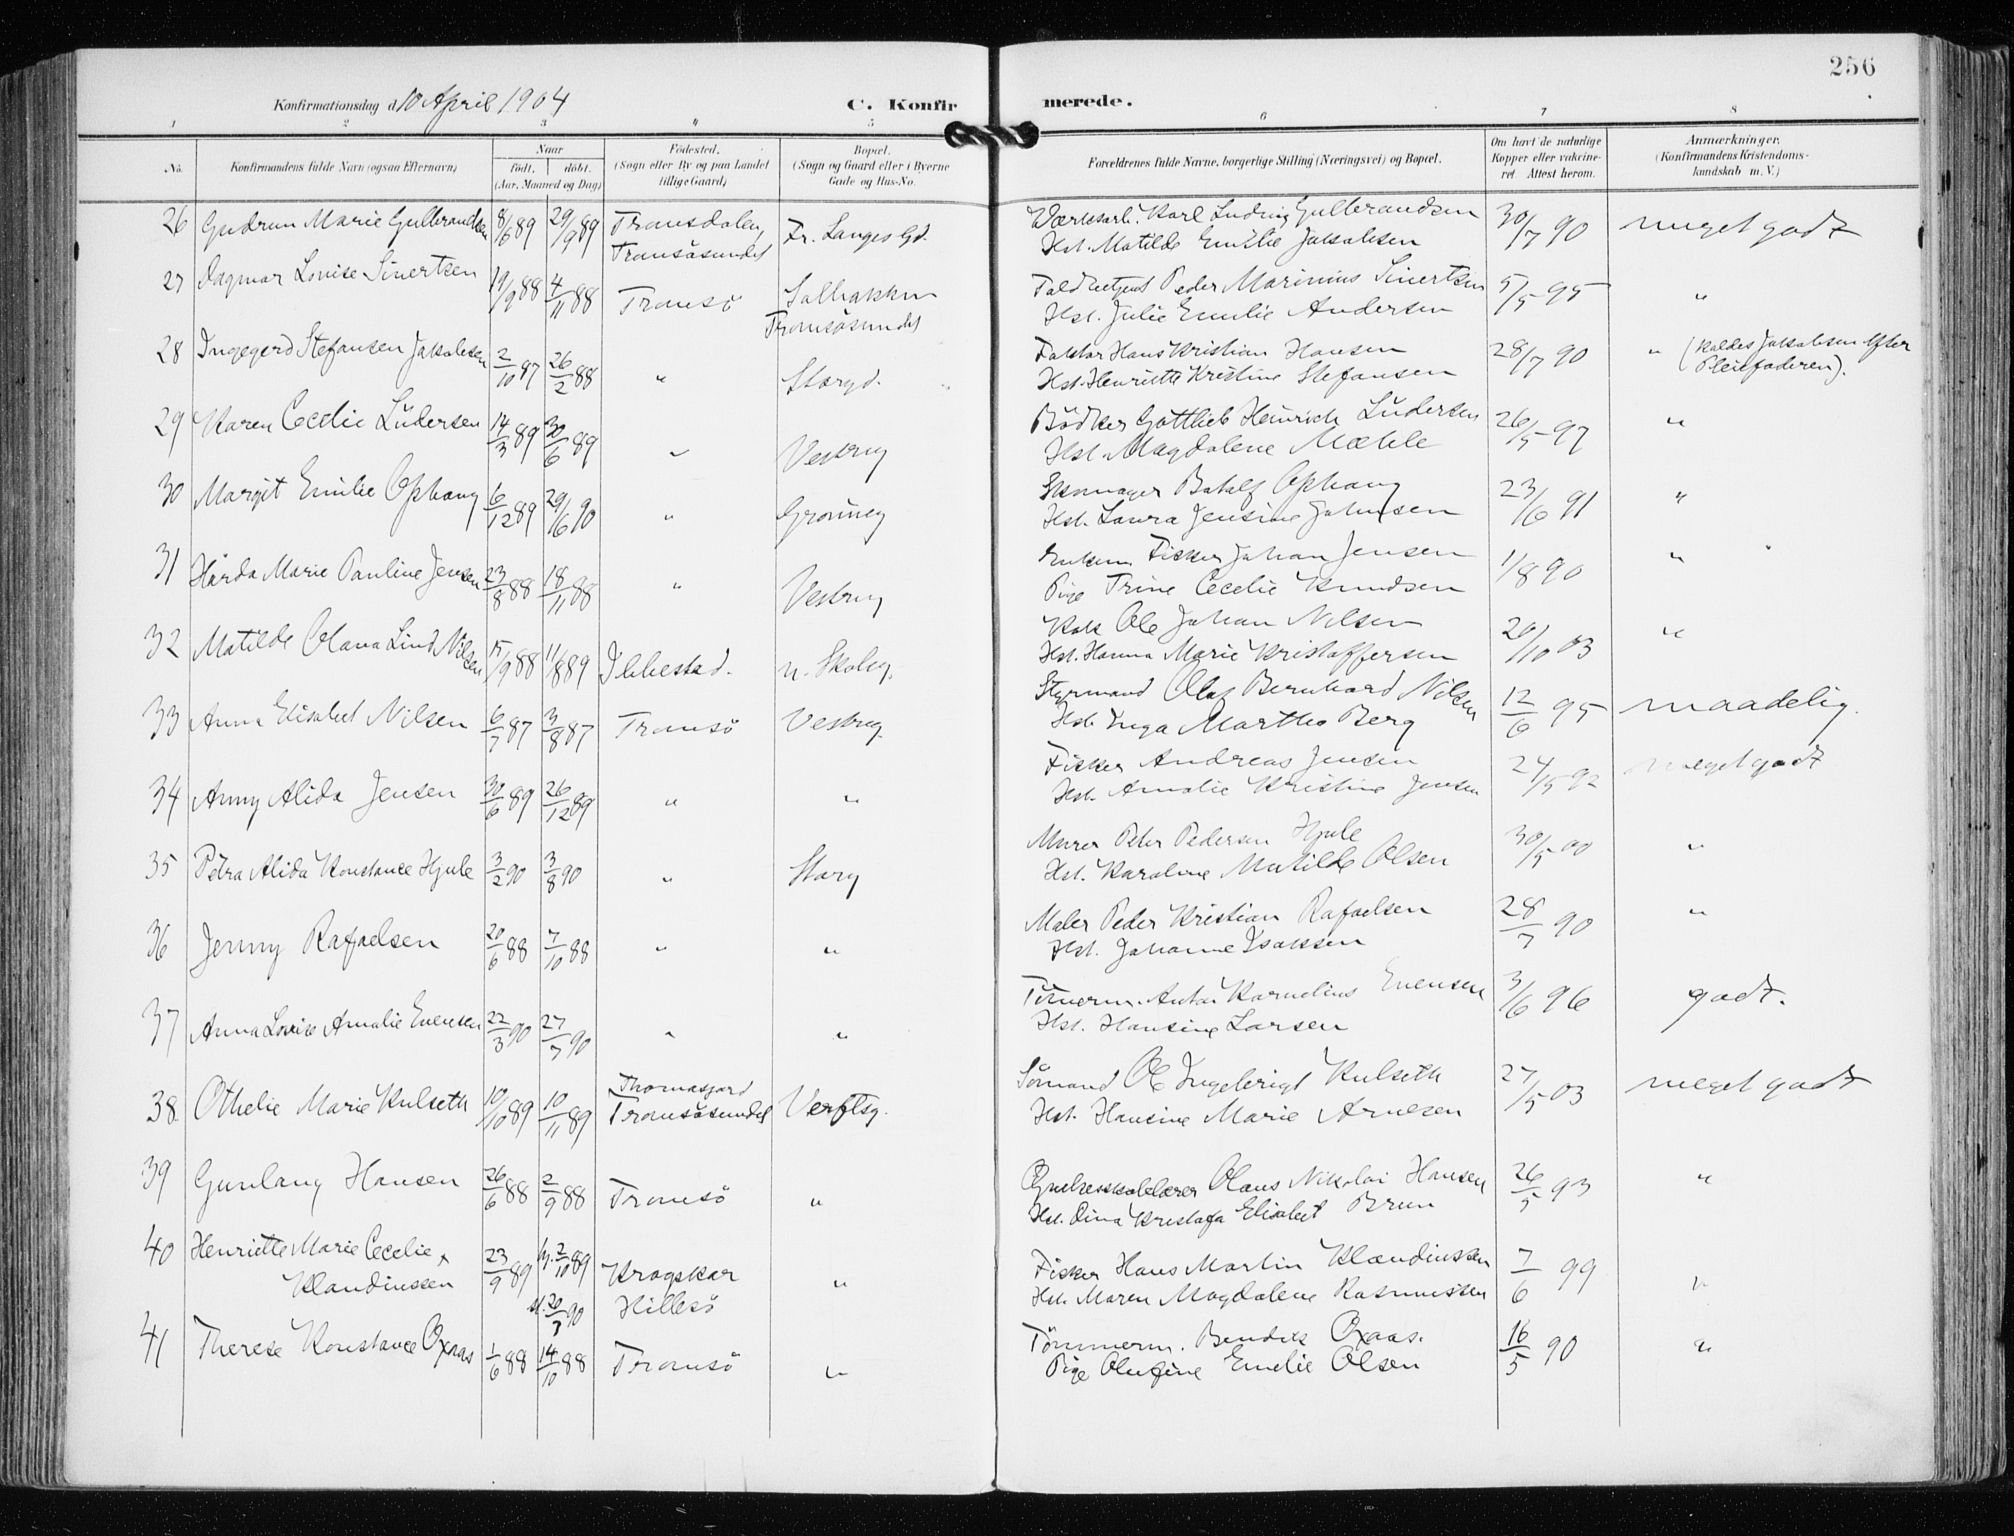 256
Konfirmationsdag d. 10 April 1904 C. Konfirmerede.
1 2 3 4 5 6 7 8
No. Konfirmandens fulde Navn (ogsaa Efternavn) Naar født. døbt. (Aar, Maaned og Dag) Fødested. (Sogn eller By og paa Landet tillige Gaard) Bopæl. (Sogn og Gaard eller i Byerne Gade og Hus-No. Forældrenes fulde Navne, borgerlige Stilling (Næringsvei) og Bopæl. Om havt de naturlige Kopper eller vakcineret. Attest herom. Anmærkninger. (Konfirmandens Kristendomskundskab m. V.)
26 Gudrun Marie Gulbrandsen 8/6 89 29/9 89 Tromsdalen Tromsösundet Fr. Langes Gd. Karl Ludvig Gulbrandsen 30/7 90 meget godt
Hst. Matilde Emilie Jakobsen
27 Dagmar Lovise Sivertsen 19/9 88 4/11 88 Tromsö Tromsösundet Peder Marinius Sivertsen 5/5 95 "
Hst. Julie Emilie Andersen
28 Ingegerd Stefansen Jakobsen 2/10 87 26/2 88 " Storgd. Faktor Hans Kristian Hansen 28/7 90 " (kaldes Jakobsen efter
Hst. Henriette Kristine Stefansen Pleiefaderen).
29 Karen Cecelie Lüdersen 14/3 89 30/6 89 " Vestreg Bödker Gottlieb Heinrich Lüdersen 26/5 97 "
Hst. Magdalene Mæhle
30 Margit Emilie Ophaug 6/12 89 29/6 90 " Grönneg Skomager Ophaug 23/6 91 "
Hst. Laura Jensine Johnsen
31 Marie Pauline Jensen 23/8 88 18/11 88 " Vestreg Enkem. Fisker Johan Jensen 11/8 90 "
Pige Trine Cecelie Knudsen
32 Matilde Olava Lind Nilsen 15/9 88 11/8 89 Ibbestad. n. Skoleg. Kok Ole Johan Nilsen 20/10 03 "
Hst. Hanna Marie Kristoffersen
33 Anna Elisabet Nilsen 6/7 87 3/8 87 Tromsö Vestreg. Styrmand Olaf Bernhard Nilsen 12/6 95 maadelig.
Hst. Inga Martha Berg
34 Anny Alida Jensen 30/6 89 26/12 89 " " Fisker Andreas Jensen 24/5 92 meget godt
Hst. Amalie Kristine Jensen
35 Petra Alida Konstance Hjule 3/2 90 3/8 90 " Storg Murer Peter Pedersen Hjule 30/5 00 "
Hst. Karoline Matilde Olsen
36 Jenny Rafaelsen 20/6 88 7/10 88 " " Maler Peder Kristian Rafaelsen 28/7 90 "
Hst. Johanne Isaksen
37 Anna Lovise Amalie Evensen 22/3 90 27/7 90 " " Tömerm. Anton Kornelius Evensen 3/6 96 godt.
Hst. Hansine Larsen
38 Othelie Marie Kulseth 10/10 89 10/11 89 Thomasjord Tromsösundet Verftsg. Sömand Ole Ingebrigt Kulseth 27/5 03 meget godt
Hst. Hansine Marie Arnesen
39 Gunlaug Hansen 26/6 88 2/9 88 Tromsö " Olaus Nikolai Hansen 26/5 93 "
Hst. Dina Kristofa Elisabet Brun
40 Henriette Marie Cecelie 23/9 89 hj. 2/10 89 Krogskar " Fisker Hans Martin Klaudiussen 7/6 99 "
Klaudiussen st. 20/7 90 Hillesö Hst. Maren Magdalene Rasmussen
41 Therese Konstance Oxaas 1/6 88 14/10 88 Tromsö " Tömmerm. Bendik Oxaas. 16/5 90 "
Pige Olufine Emelie Olsen